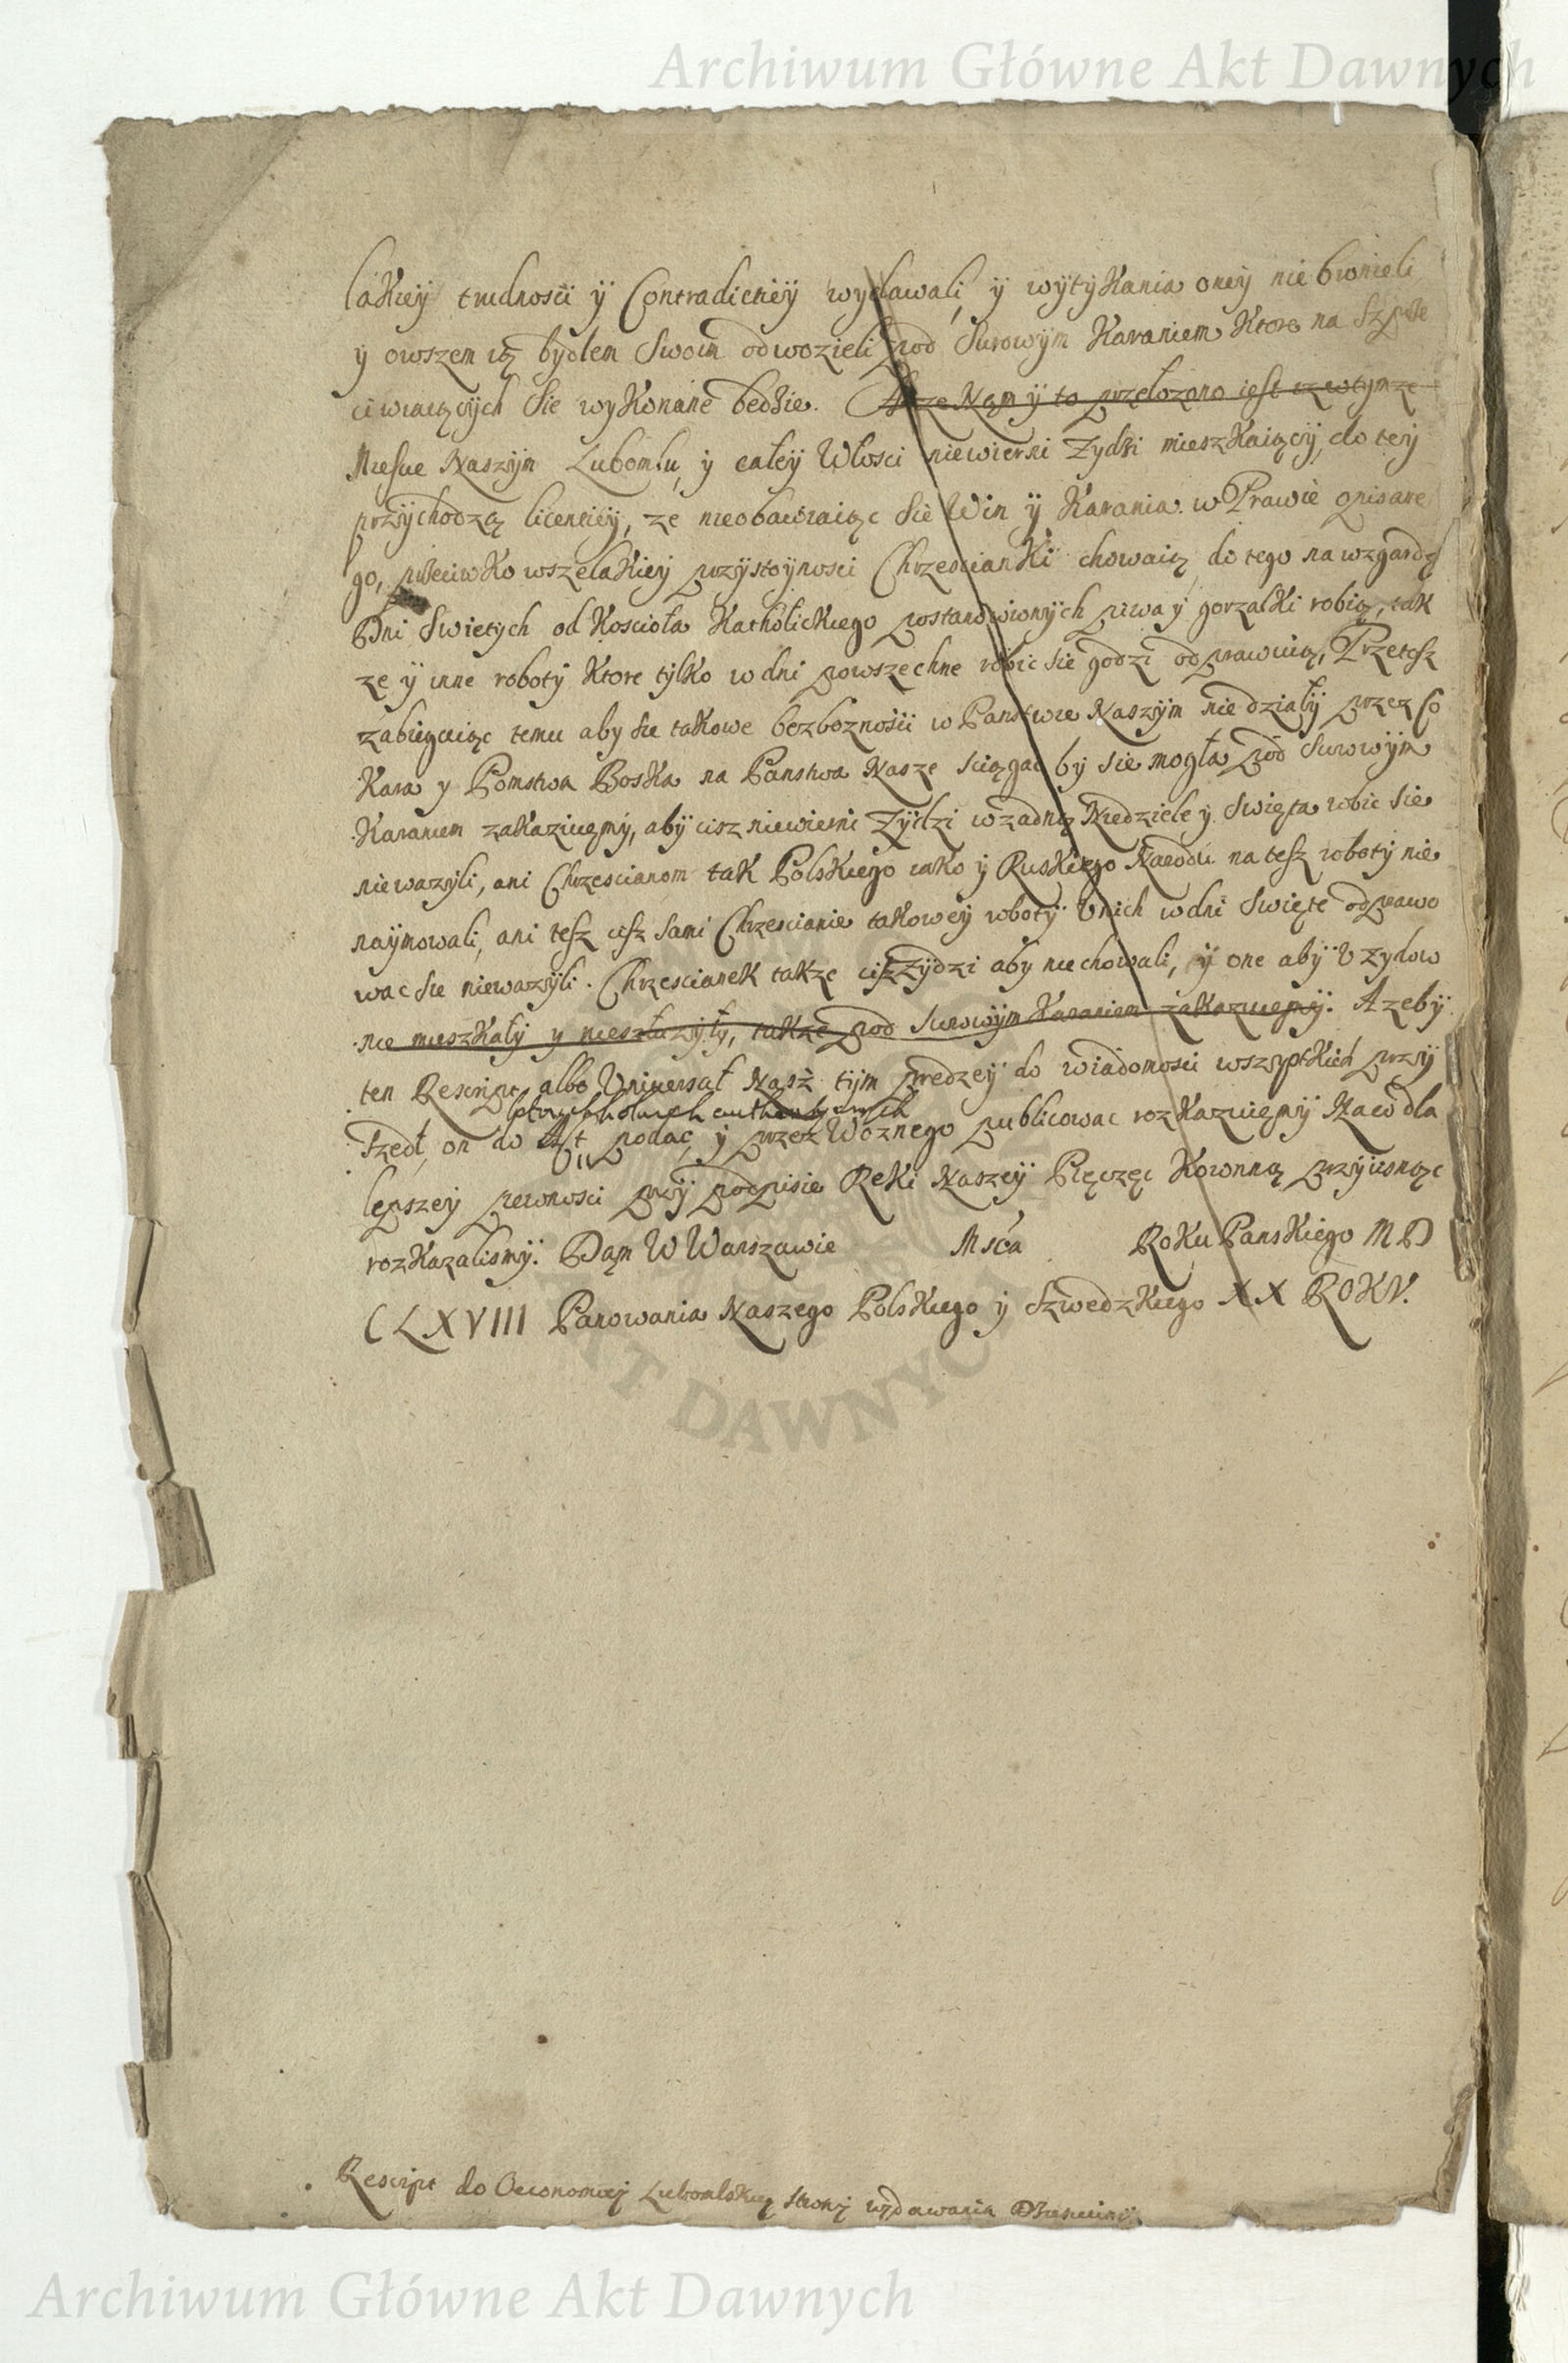 Archiwum Główne Akt Dawnych
lakiey trudnosći ÿ Contradictiÿ wydawali, ÿ wÿtÿkania oneÿ nie bronieli
y owszem ią bÿdłem Swoim odwozieli pod Surowÿm Karaniem Ktore na Sprze
ciwiaiącÿch Sie wÿkonane bedźie. A ze Nąm ÿ to przełozono iest iz wtymze
Miescie Naszÿm Lubomlu, ÿ całeÿ Włosci niewierni Zydźi mieszkaiącÿ, do teÿ
przÿchodzą licentieÿ, ze nieobawiaiąc Sie Win ÿ Karania w Prawie opisane
go, przeciwko wszelakieÿ przÿstoÿnosci Chrzescianki chowaią, do tego na wzgardę
Dni Swietych od Koscioła Katholickiego postanowionÿch piwa ÿ gorzałki robią, tak
ze ÿ inne robotÿ Ktore tÿlko w dni powszechne robic Sie godzi odprawuią, Przetosz
zabiegaiąc temu aby Sie takowe bezboznośći w Panstwie Naszÿm nie działÿ przez Co
Kara y Pomstwa Boska na Panstwa Nasze sciągać bÿ Sie mogła pod Surowÿm
Karaniem zakazuięmÿ, abÿ cisz niewierni Zÿdzi w zadną Niedziele ÿ Swięta robic Sie
niewazÿli, ani Chrzescianom tak Polskiego iako ÿ Ruskiego Narodu na tesz robotÿ nie
naÿmowali, ani tesz cisz Sami Chrzescianie takoweÿ robotÿ U nich w dni Swięte odprawo
wac Sie niewazÿli. Chrzescianek takze cisz Zÿdzi aby nie chowali, ÿ one abÿ U Zydow
nie mieszkałÿ y niesłuzÿłÿ, takze pod Surowÿm Karaniem zakazuięmÿ. A zebÿ
ten Rescript albo Uniwersał Nasz tÿm predzeÿ do wiadomosci wszÿstkich przÿ
ktorychkolwiek authentycznych
szedł, on do Akt podać, ÿ przez Woznego publicowac rozkazuięmÿ Naco dla
lepszeÿ pewnosci przÿ podpisie Reki Naszeÿ Pięczęc Koronną przÿcisnąc
rozkazalismÿ. Dąn W Warszawie Msća Roku Panskiego M D
C LXVIII Panowania Naszego Polskiego ÿ Szwedzkiego XX ROKV.
AKT DAWNYCH
Rescript do Oeconomiej Lubomlskiey strony wydawania Dziesieciny
Archiwum Główne Akt Dawnych